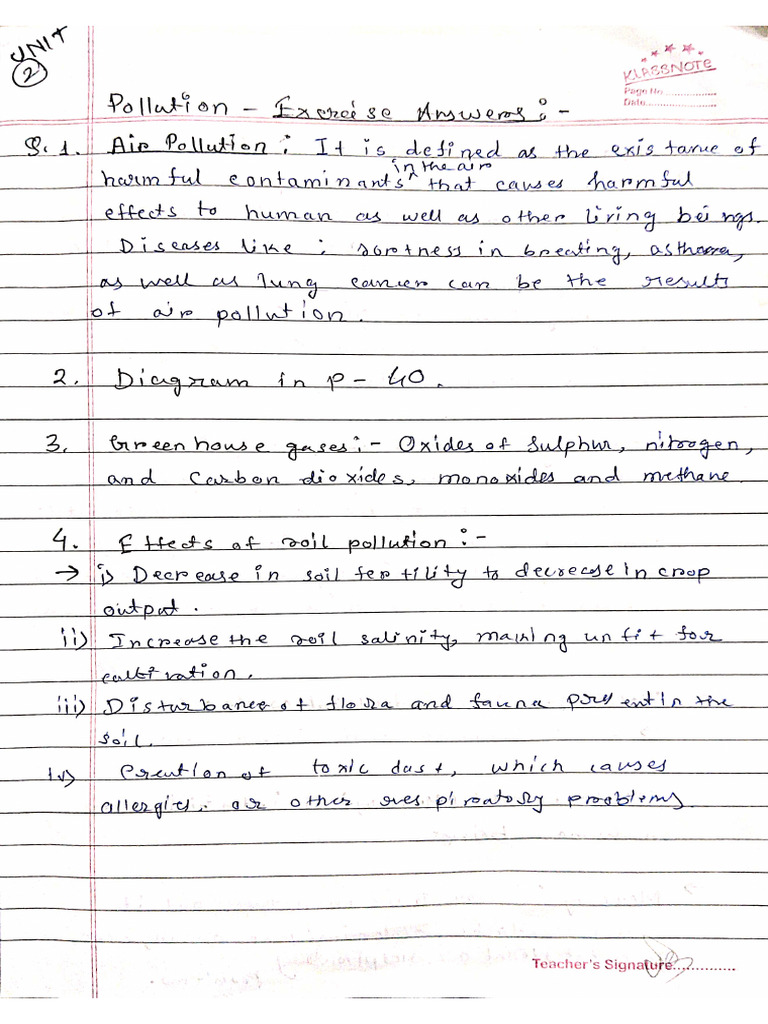 UNIT
2
KLASSNOTE
Page No.
Date
Pollution - Exercise Answers :-
Q. 1. Air Pollution : It is defined as the existance of
in the air
harmful contaminants ^ that causes harmful
effects to human as well as other living beings.
Diseases like : sortness in breating, asthama,
as well as lung cancer can be the results
of air pollution.
2. Diagram in p - 40.
3. Greenhouse gases :- Oxides of sulphur, nitrogen,
and carbon dioxides, monoxides and methane.
4. Effects of soil pollution :-
→ i) Decrease in soil fertility to decrease in crop
output.
ii) Increase the soil salinity, making unfit for
cultivation.
iii) Disturbance of flora and fauna present in the
soil.
iv) Creation of toxic dust, which causes
allergies. or other respiratory problems
Teacher's Signature